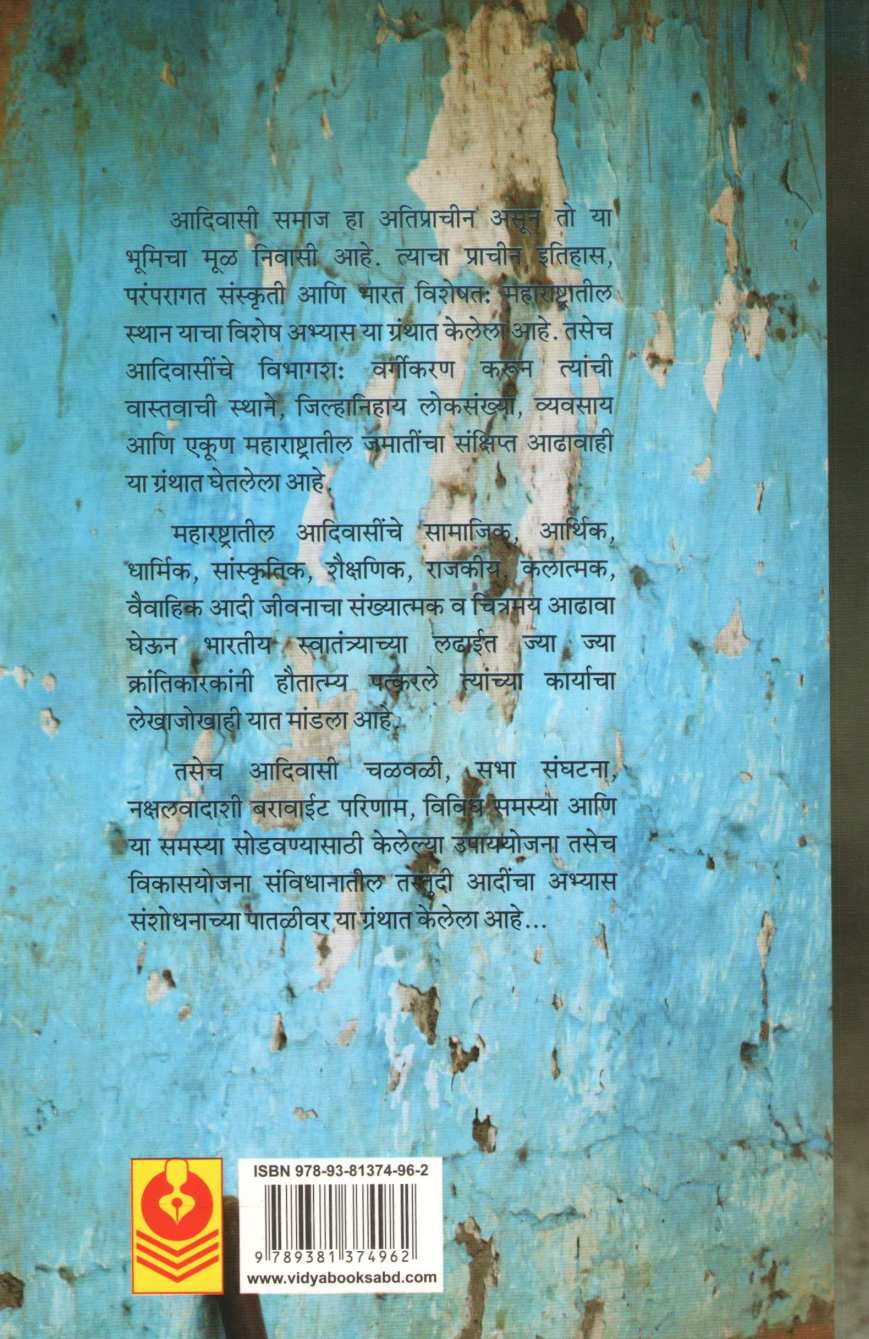 आदिवासी समाज हा अतिप्राचीन असून तो या
भूमिचा मूळ निवासी आहे. त्याचा प्राचीन इतिहास,
परंपरागत संस्कृती आणि भारत विशेषतः महाराष्ट्रातील
स्थान याचा विशेष अभ्यास या ग्रंथात केलेला आहे. तसेच
आदिवासींचे विभागशः वर्गीकरण करून त्यांची
वास्तवाची स्थाने, जिल्हानिहाय लोकसंख्या, व्यवसाय
आणि एकूण महाराष्ट्रातील जमातींचा संक्षिप्त आढावाही
या ग्रंथात घेतलेला आहे.
महारष्ट्रातील आदिवासींचे सामाजिक, आर्थिक,
धार्मिक, सांस्कृतिक, शैक्षणिक, राजकीय, कलात्मक,
वैवाहिक आदी जीवनाचा संख्यात्मक व चित्रमय आढावा
घेऊन भारतीय स्वातंत्र्याच्या लढाईत ज्या ज्या
क्रांतिकारकांनी हौतात्म्य पत्करले त्यांच्या कार्याचा
लेखाजोखाही यात मांडला आहे.
तसेच आदिवासी चळवळी, सभा संघटना,
नक्षलवादाशी बरावाईट परिणाम, विविध समस्या आणि
या समस्या सोडवण्यासाठी केलेल्या उपाययोजना तसेच
विकासयोजना संविधानातील तरतुदी आदींचा अभ्यास
संशोधनाच्या पातळीवर या ग्रंथात केलेला आहे...
ISBN 978-93-81374-96-2
9 789381 374962
www.vidyabooksabd.com